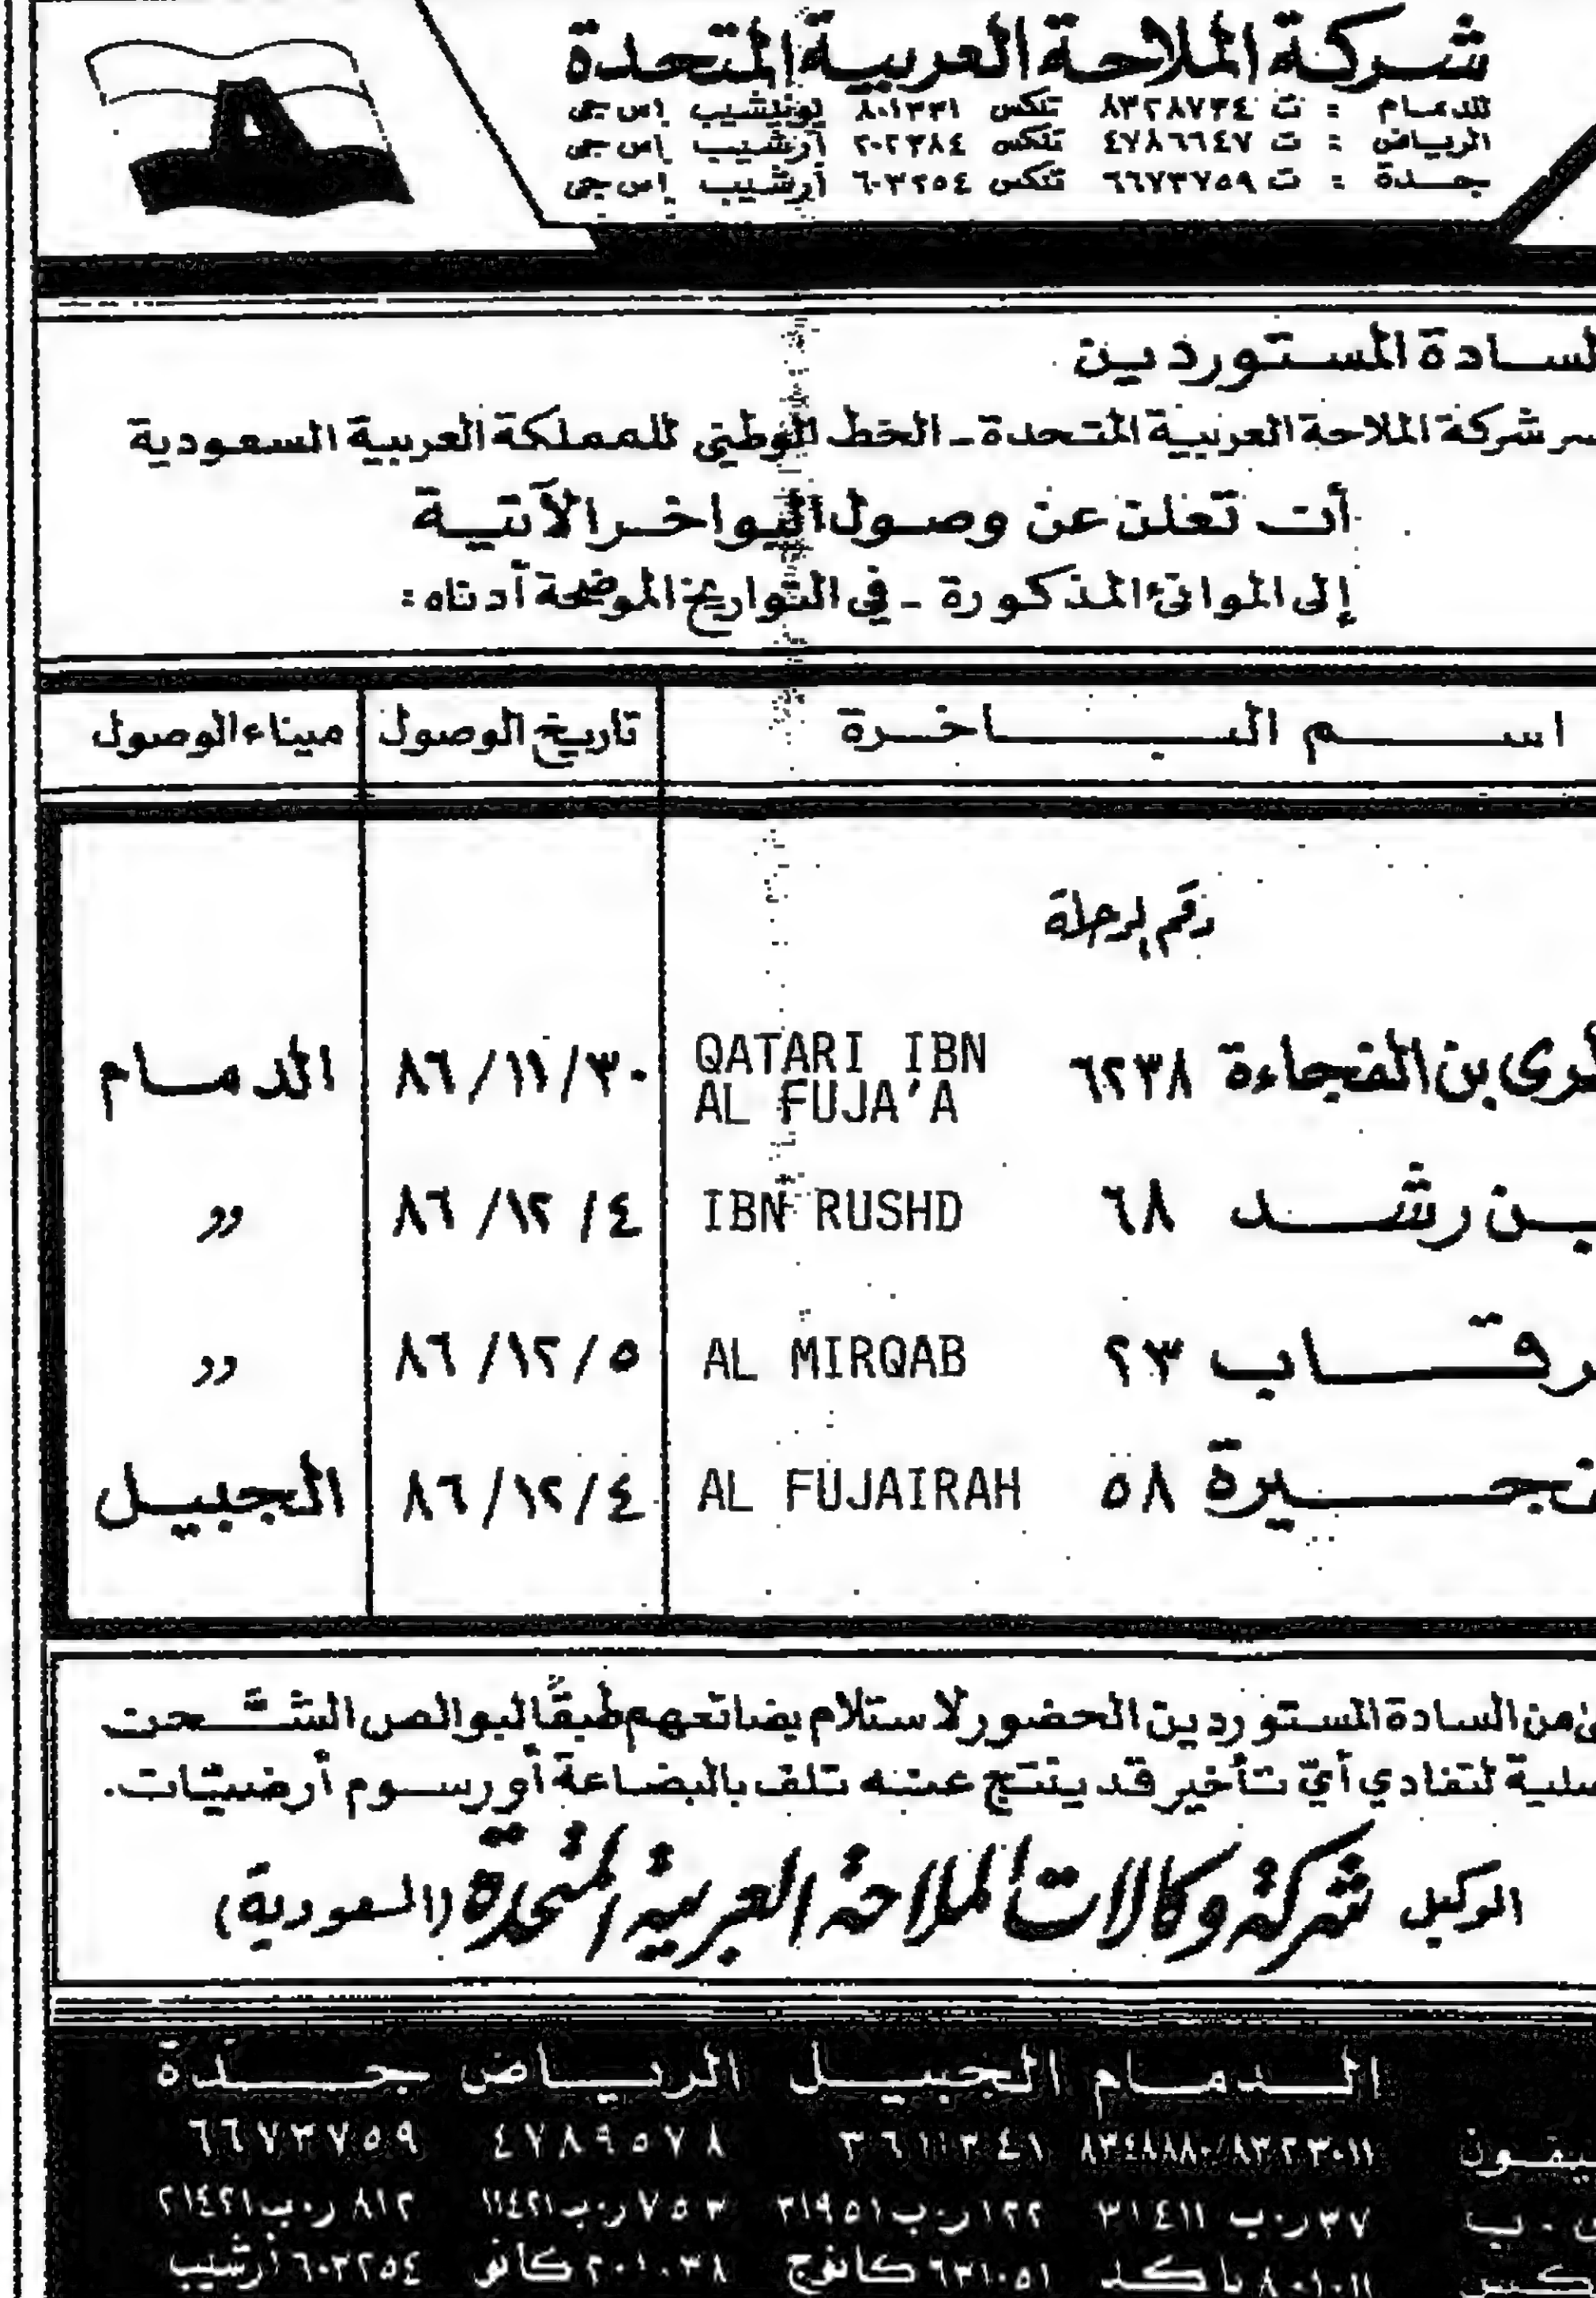 شركة الملاحة العربية المتحدة
الدمام : ت ٨٣٢٨٧٣٤ تلكس ٨٠١٣٣١ يونيشيب إس جي
الرياض : ت ٤٧٨٦٦٤٧ تلكس ٢٠٢٣٨٤ أرشيب إس جي
جدة : ت ٦٦٧٣٧٥٩ تلكس ٦٠٣٢٥٤ أرشيب إس جي
لسادة المستوردين
سر شركة الملاحة العربية المتحدة - الخط الوطني للمملكة العربية السعودية
أن تعلن عن وصول البواخر الآتية
إلى الموانئ المذكورة - في التواريخ الموضحة أدناه :
اسم الباخرة تاريخ الوصول ميناء الوصول
رقم الرحلة
طرى بن الفجاءة ٦٢٣٨ QATARI IBN AL FUJA'A ٨٦/١١/٣٠ الدمام
بن رشد ٦٨ IBN RUSHD ٨٦/١٢/٤ ,,
رقاب ٢٣ AL MIRQAB ٨٦/١٢/٥ ,,
جيرة ٥٨ AL FUJAIRAH ٨٦/١٢/٤ الجبيل
من السادة المستوردين الحضور لاستلام بضائعهم طبقًا لبوالص الشحن
صلية لتفادي أيّ تأخير قد ينتج عنه تلف بالبضاعة أو رسوم أرضيّات.
الوكيل شركة وكالات الملاحة العربية المتحدة (السعودية)
الدمام الجبيل الرياض جدة
يفون ٨٣٤٨٨٨٠/٨٣٢٣٠١١ ٣٦١١٣٤١ ٤٧٨٩٥٧٨ ٦٦٧٣٧٥٩
ب ٣٧ ر.ب ٣١٤١١ ١٢٢ ر.ب ٣١٩٥١ ٧٥٣ ر.ب ١١٤٢١ ٨١٢ ر.ب ٢١٤٢١
٨٠١٠١١ باكد ٦٣١٠٥١ كانوج ٢٠١٠٣٨ كانو ٦٠٣٢٥٤ أرشيب